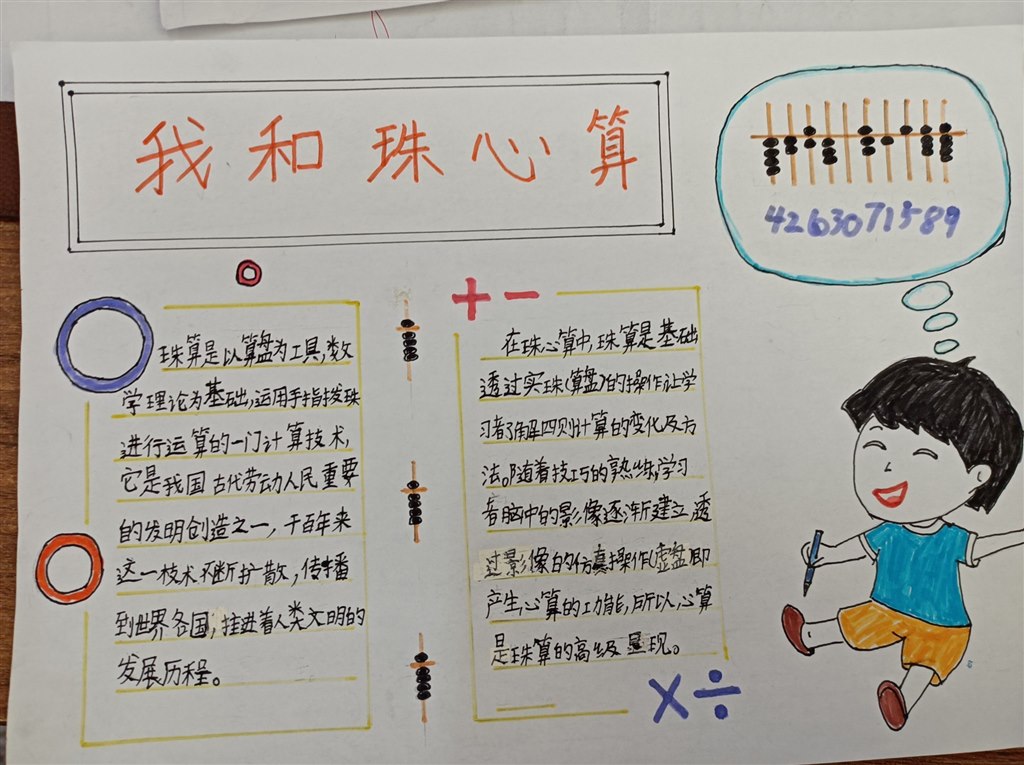 我和珠心算
4263071589
珠算是以算盘为工具,数
学理论为基础,运用手指拨珠
进行运算的一门计算技术,
它是我国古代劳动人民重要
的发明创造之一,千百年来
这一技术不断扩散,传播
到世界各国,推进着人类文明的
发展历程。
+ -
在珠心算中,珠算是基础
透过实珠(算盘)的操作让学
习者了解四则计算的变化及方
法。随着技巧的熟练,学习
者脑中的影像逐渐建立,透
过影像的仿真操作(虚盘)即
产生心算的功能,所以,心算
是珠算的高级显现。
× ÷